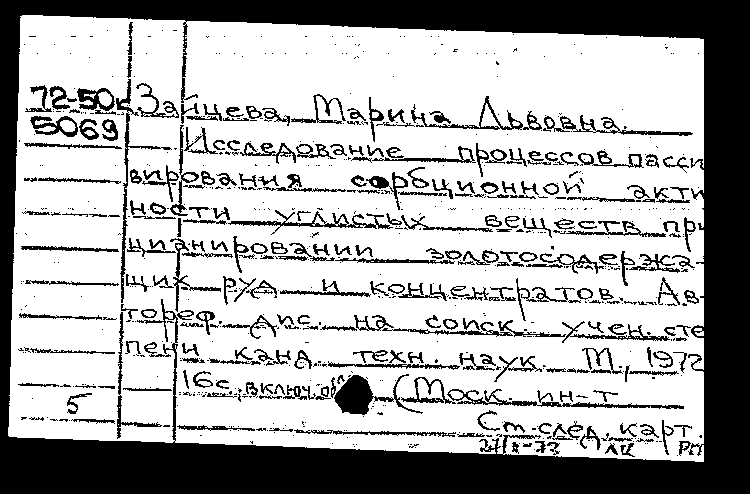 72-50к Зайцева, Марина Львовна.
5069
Исследование процессов пасси
вирования сорбционной акти
ности углистых веществ при
цианировании золотосодержа-
щих руд и концентратов. Ав-
тореф. дис. на соиск. учен. сте
пени канд техн. наук. М., 1972
16с., включ. об (Моск. ин-т
5
См. след. карт.